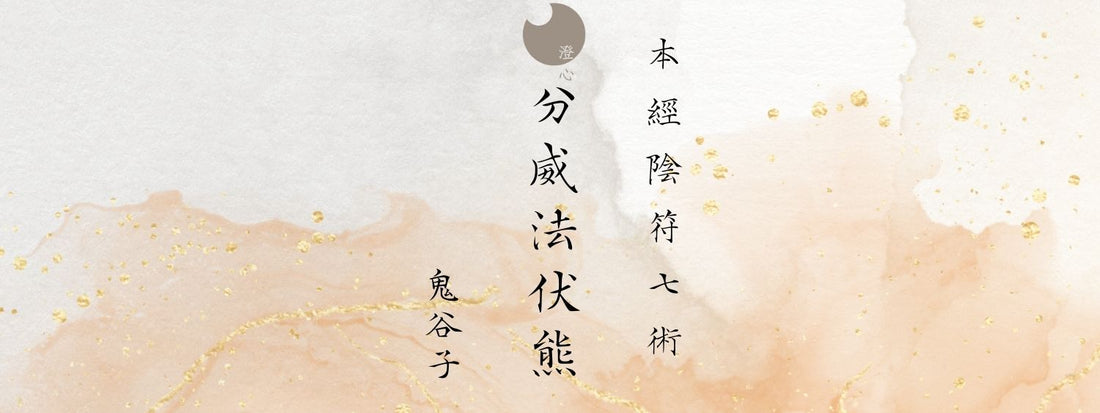 本經陰符七術
澄心
分威法伏熊
鬼谷子